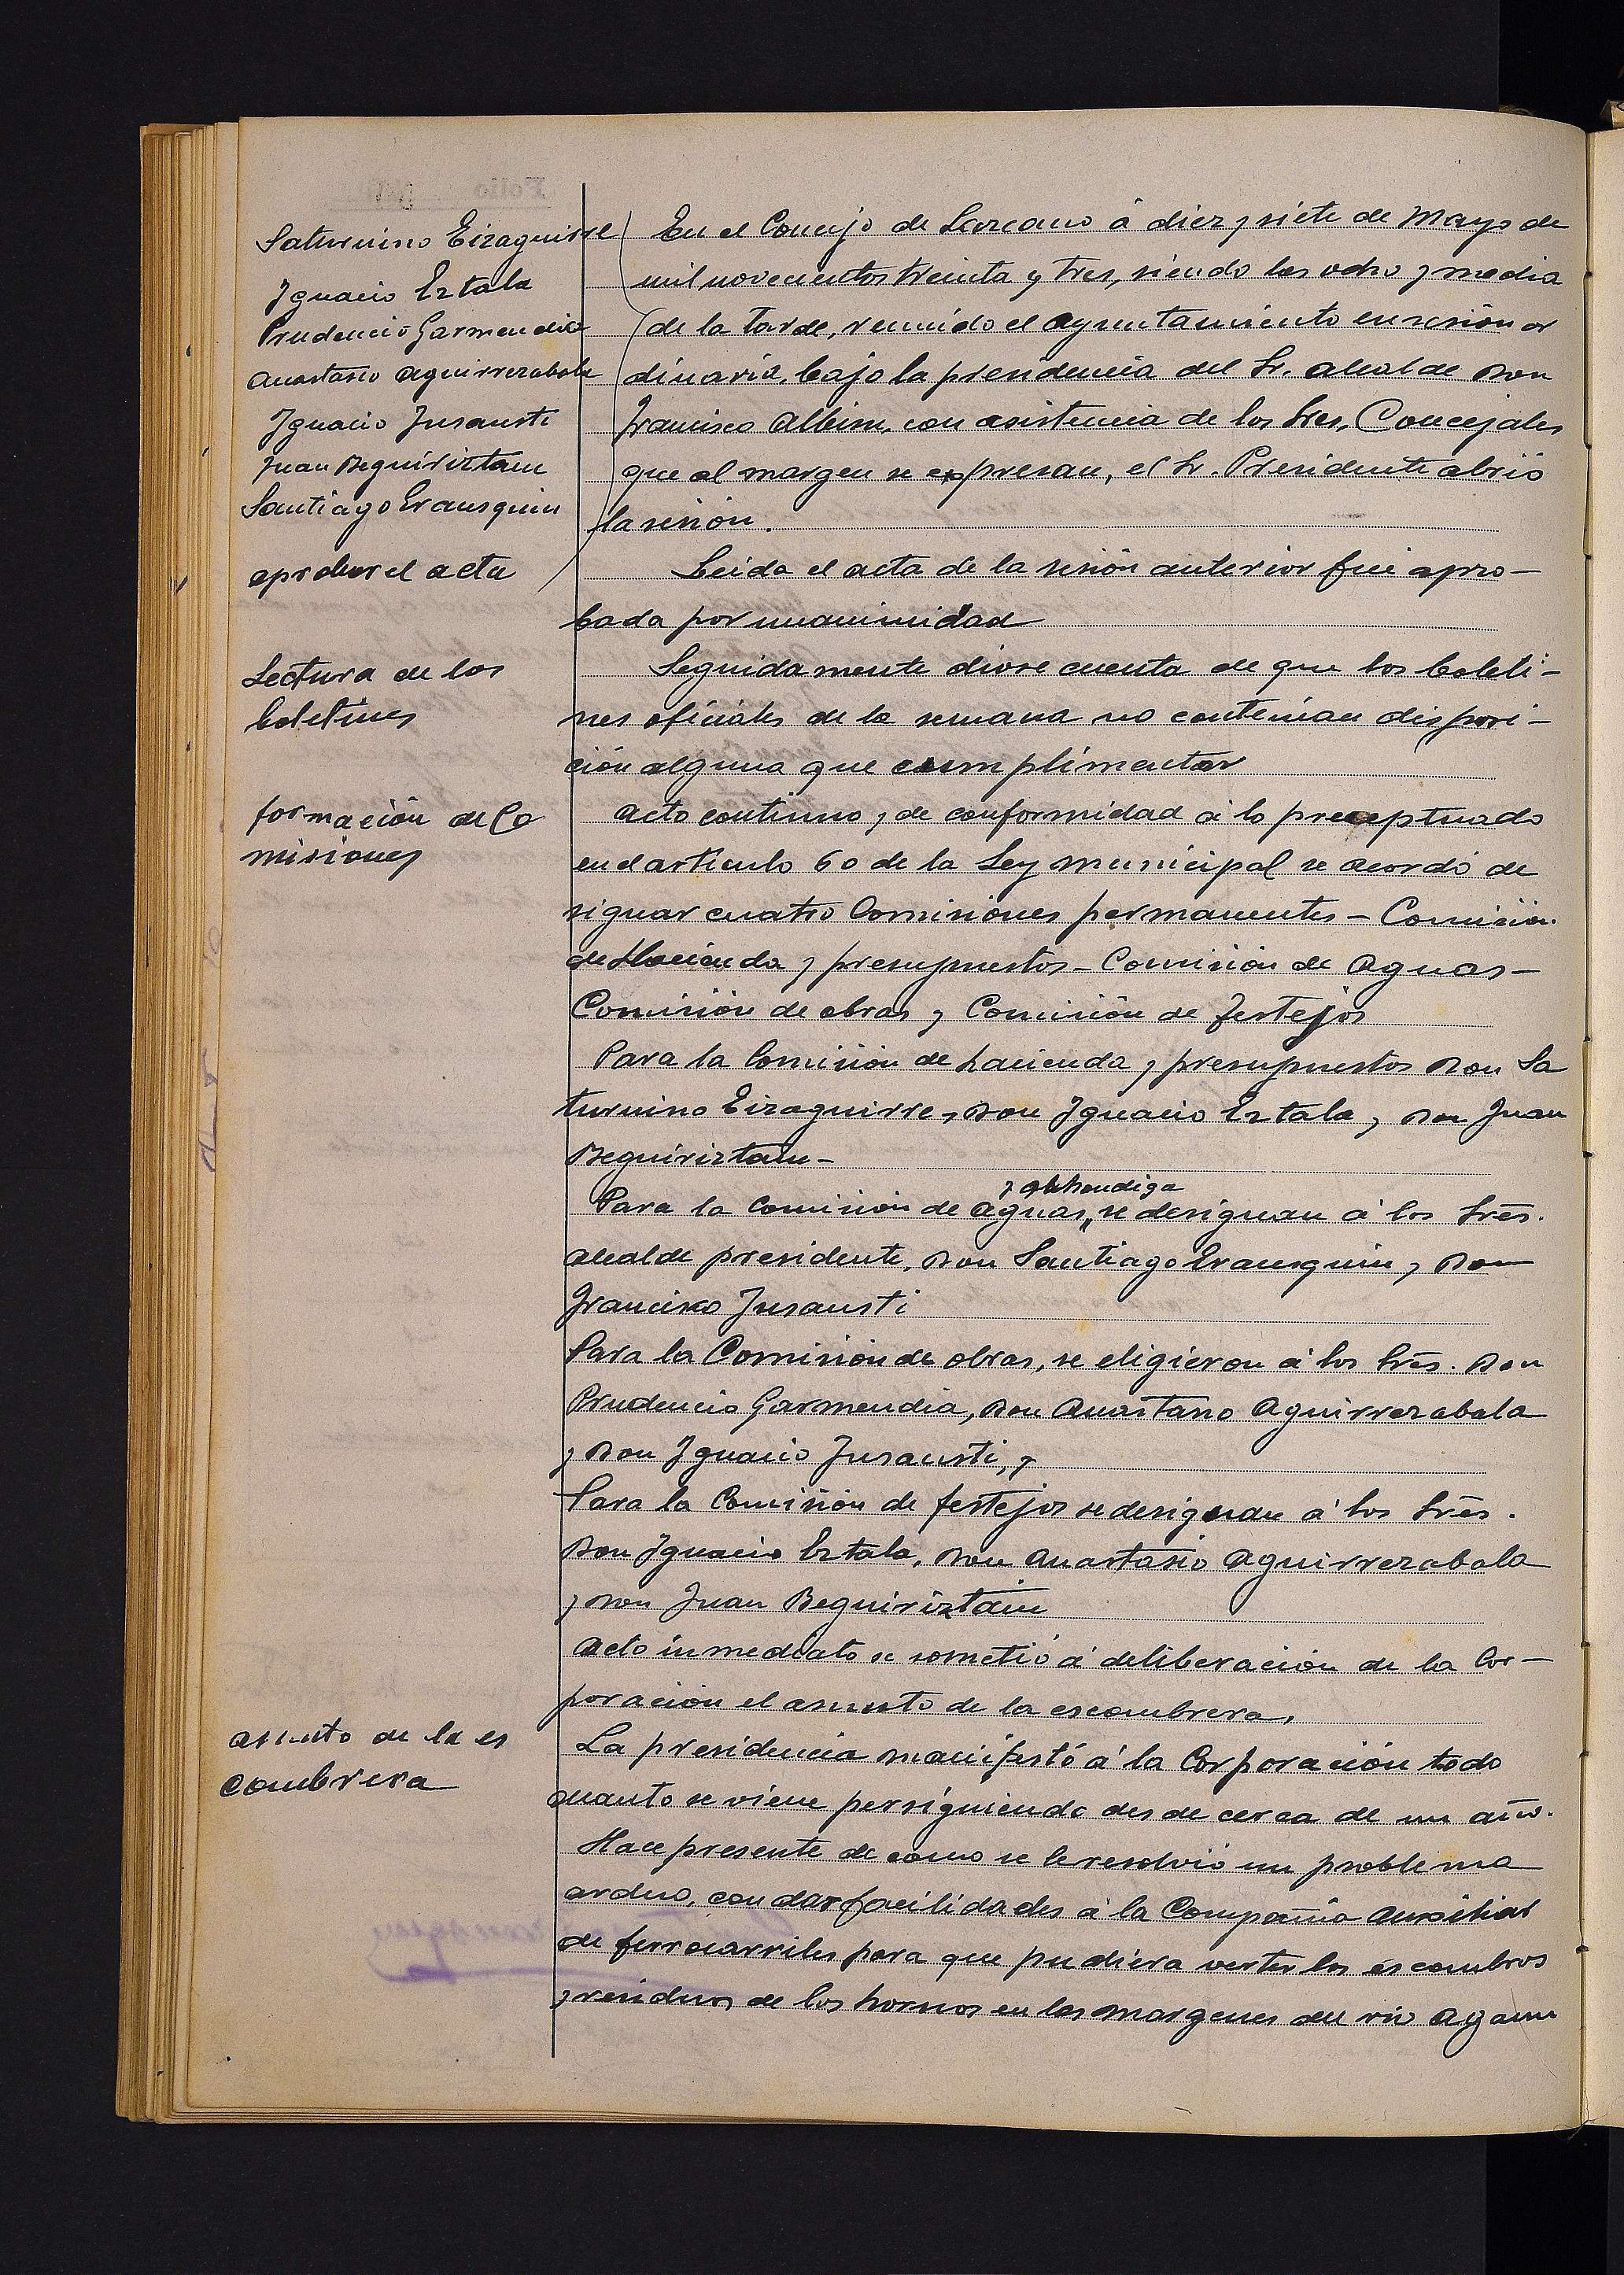 Saturnino Eizaguirre
Ignacio Eztala
Prudencio Garmendia
Anastasio Aguirrezabala
Ignacio Insausti
Juan Beguiriztain
Santiago Erausquin
aprobar el acta
Lectura de los
boletines
formación de Co
misiones
asunto de la es
combrera
En el Concejo de Lazcano á diez y siete de Mayo de
mil novecientos treinta y tres, siendo las ocho y media
de la tarde, reunido el Ayuntamiento en sesión or
dinaria, bajo la presidencia del Sr. Alcalde Don
Francisco Albisu, con asistencia de los Sres. Concejales
que al margen se expresan, el Sr. Presidente abrió
la sesión.
Leida el acta de la sesión anterior fué apro-
bada por unanimidad
Seguidamente diose cuenta de que los boleti-
nes oficiales de la semana no contenian disposi-
ción alguna que cumplimentar
Acto continuo y de conformidad á lo preceptuado
en el articulo 60 de la Ley municipal se acordó de
signar cuatro Comisiones permanentes - Comisión
de Hacienda y presupuestos - Comisión de Aguas -
Comisión de obras y Comisión de festejos
Para la Comisión de hacienda y presupuestos Don Sa
turnino Eizaguirre, Don Ignacio Eztala y Don Juan
Beguiriztain -
y alhondiga
Para la Comisión de Aguas, se designan á los Sres.
Alcalde presidente, Don Santiago Erausquin y Don
Francisco Insausti
Para la Comisión de obras, se eligieron á los Sres. Don
Prudencio Garmendia, Don Anastasio Aguirrezabala
y Don Ignacio Insausti, y
Para la Comisión de festejos se designan á los Sres.
Don Ignacio Eztala, Don Anastasio Aguirrezabala
y Don Juan Beguiriztain
Acto inmediato se sometió á deliberación de la Cor-
poración el asunto de la escombrera.
La presidencia manifestó á la Corporación todo
cuanto se viene persiguiendo desde cerca de un año.
Hace presente de como se le resolvió un problema
arduo, con dar facilidades á la Compañia Auxiliar
de ferrocarriles para que pudiera verter los escombros
y residuos de los hornos en las margenes del rio Agaun